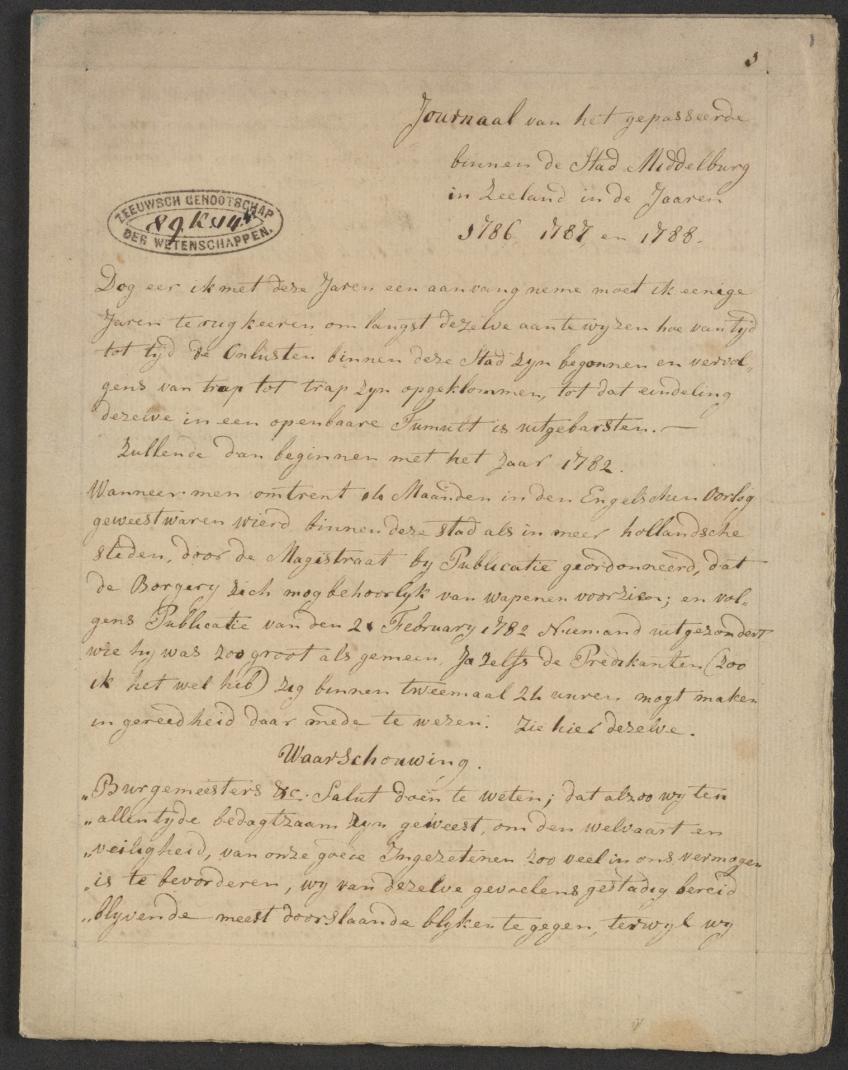 Journaal van het gepasseerde
binnen de Stad Middelburg
in Zeeland in de Jaaren
1786, 1787, en 1788.
ZEEUWSCH GENOOTSCHAP
DER WETENSCHAPPEN.
Dog eer ik met deze Jaren een aanvang neme moet ik eenige
Jaren te rug keeren om langst dezelve aan te wyzen hoe van tyd
tot tyd de Onlusten binnen deze Stad zyn begonnen en vervol„
gens van trap tot trap zyn opgeklommen, tot dat eindeling
dezelve in een openbaare Tumult is uitgebarsten.—
Zullende dan beginnen met het Jaar 1782.
Wanneer men omtrent Maanden in den Engelschen Oorlog
geweest waren wierd binnen deze stad als in meer hollandsche
steden, door de Magistraat by Publicatie geordonneerd, dat
de Borgery zich mogbehoorlyk van wapenen voorzien; en vol„
gens Publicatie van den February 1782 Niemand uitgezondert
wie hy was zoo groot als gemeen, Ja zelfs de Predikanten (zoo
ik het wel heb) zig binnen tweemaal 24 uuren mogt maken
in gereedheid daar mede te wezen. Zie hier dezelve.
Waarschouwing.
„Burgemeesters &c. Salut doen te weten; dat alzoo wy ten
„allen tyde bedagtzaam zyn geweest, om den welvaart en
„veiligheid, van onze goeie Ingezetenen zoo veel in ons vermogen
„is te bevorderen, wy van dezelve gevoelens gestadig bereid
„blyvende meest doorslaande blyken te gegen, terwyl wy